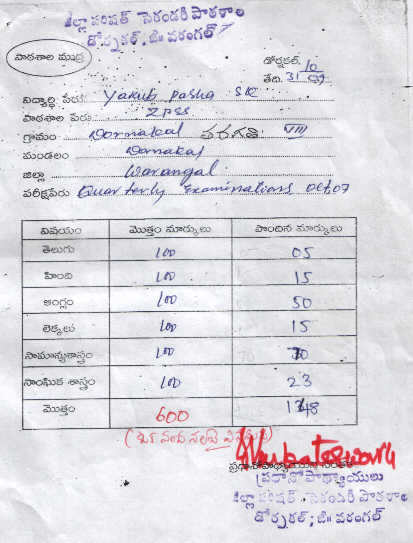 జిల్లా పరిషత్ సెకండరీ పాఠశాల
డోర్నకల్, జిః వరంగల్
పాఠశాల ముద్ర
డోర్నకల్,
తేది. 31/10/07
విద్యార్థి పేరు Yakub pasha SK
పాఠశాల పేరు ZPSS
గ్రామం Dornakal తరగతి VIII
మండలం Dornakal
జిల్లా Warangal
పరీక్షపేరు Quarterly Examinations Oct,07
విషయం మొత్తం మార్కులు పొందిన మార్కులు
తెలుగు 100 05
హింది 100 15
ఆంగ్లం 100 50
లెక్కలు 100 15
సామాన్యశాస్త్రం 100
సాంఘిక శాస్త్రం 100 23
మొత్తం 600
ప్రధానోపాధ్యాయులు
జిల్లా పరిషత్ సెకండరీ పాఠశాల
డోర్నకల్, జిః వరంగల్